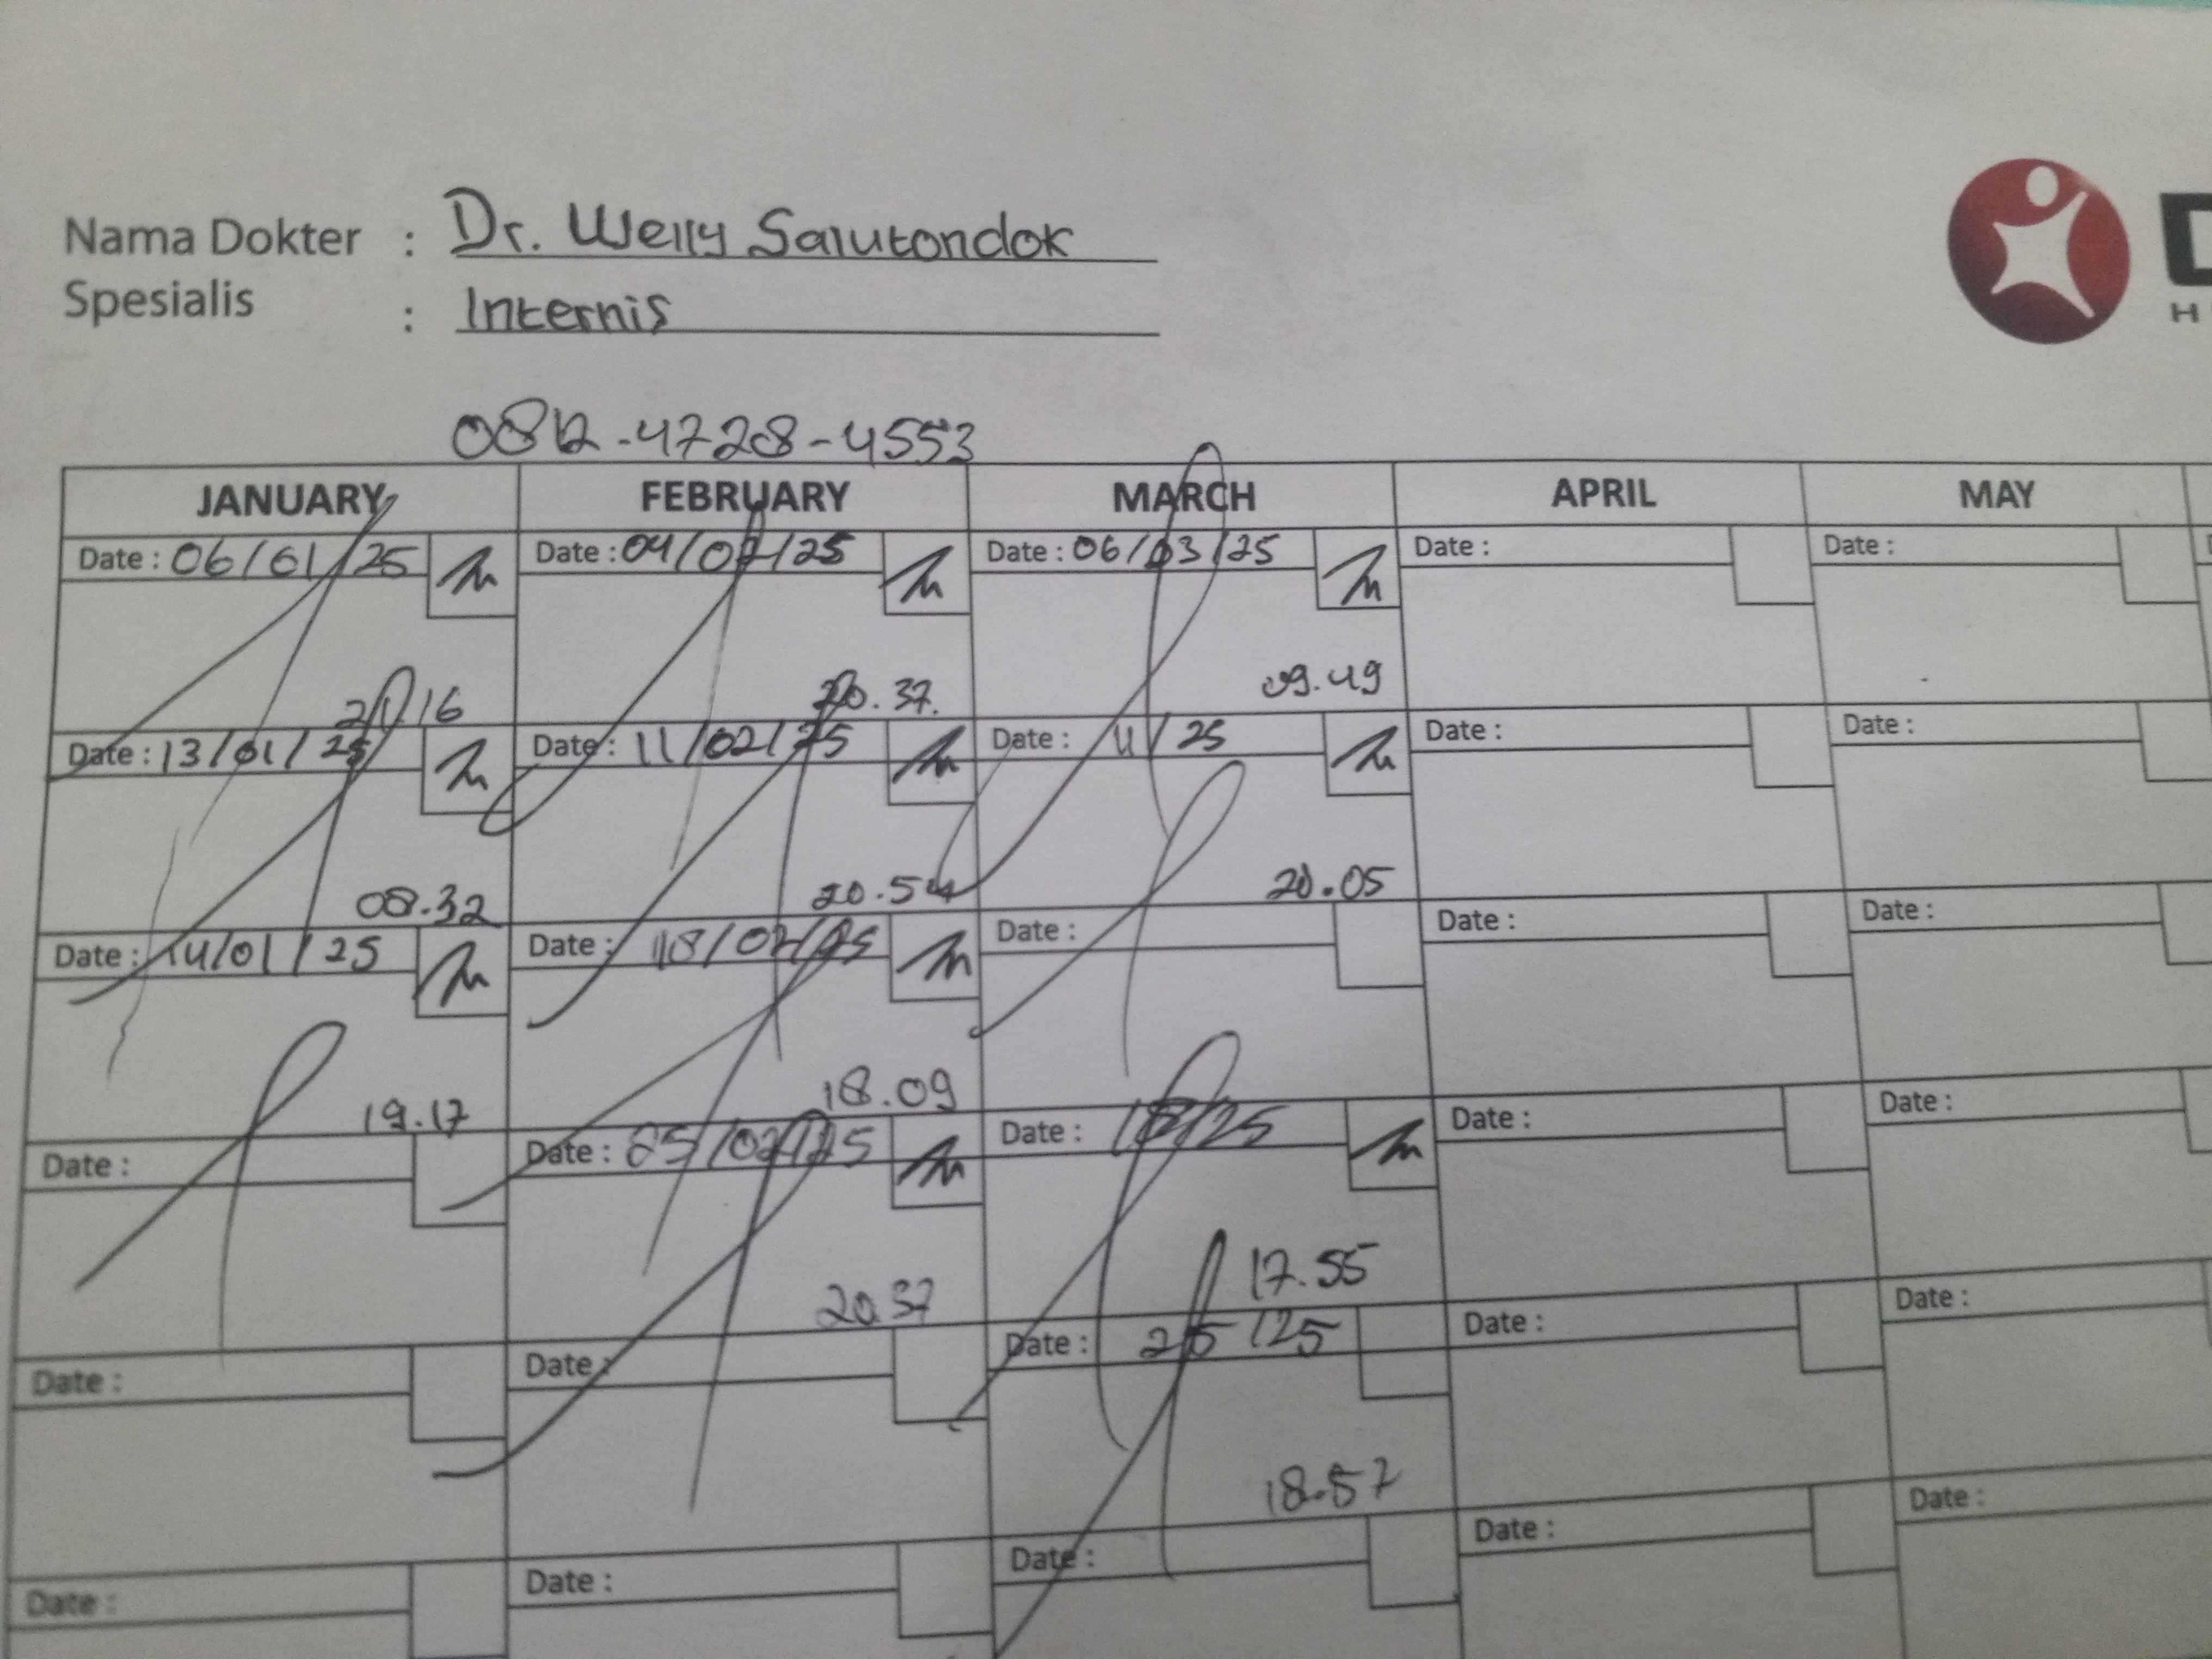 Nama Dokter : Dr. Welly Salutondok
Spesialis : Internis
D
H
0812-4728-4553
JANUARY FEBRUARY MARCH APRIL MAY
Date : 06/01/25 Date : 04/02/25 Date : 06/03/25 Date : Date :
16 20.37. 09.49
Date : 13/01/25 Date : 11/02/25 Date : 11/25 Date : Date :
08.32 20.54 20.05
Date : 14/01/25 Date : 18/02/25 Date : Date : Date :
19.17 18.09
Date : Date : 25/02/25 Date : 18/25 Date : Date :
20.37 17.55
Date : Date : Date : 25/25 Date : Date :
18.57
Date : Date : Date : Date : Date :